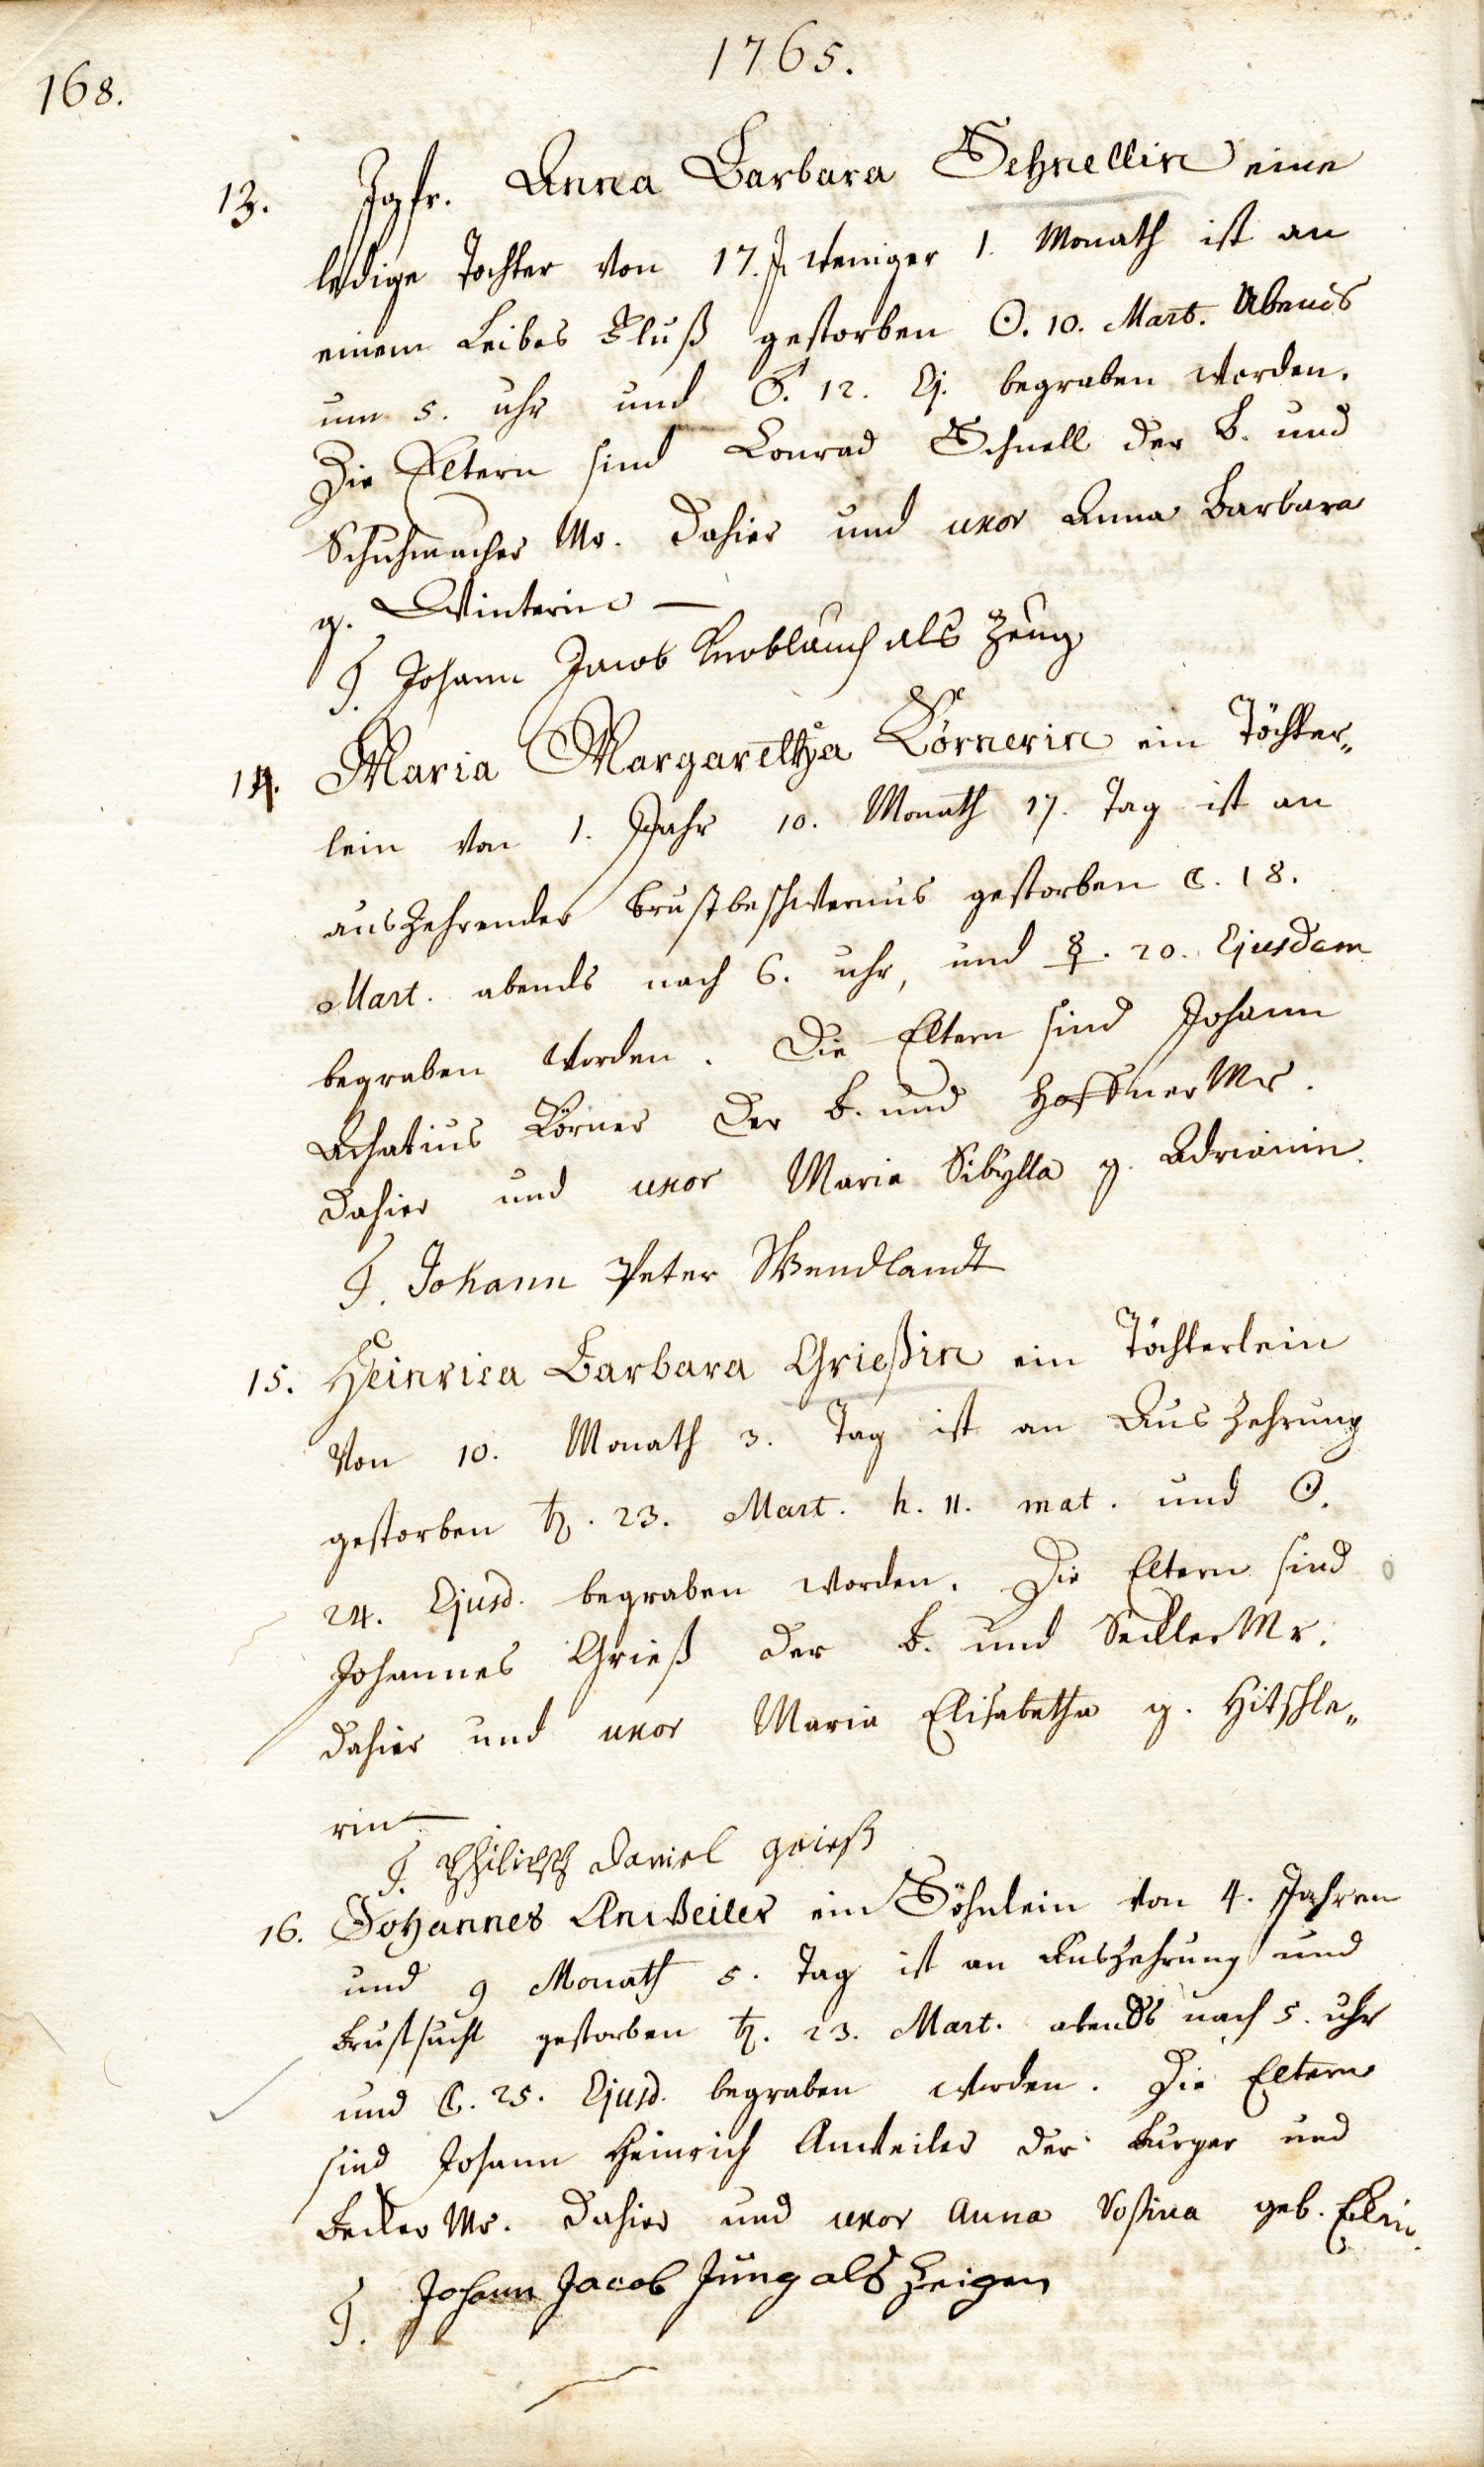 168.
1765.
13. Jgfr. Anna Barbara Schnellin eine
ledige Tochter von 17. J. weniger 1. Monath ist an
einem Leibes Fluß gestorben ☉. 10. Mart. Abends
um 5. uhr und ♂. 12. Ej. begraben worden.
Die Eltern sind Conrad Schnell der B. und
Schuhmacher Mr. dahier und uxor Anna Barbara
g. Winterin —
T. Johann Jacob Knoblauch als Zeug
14. Maria Margaretha Körnerin ein Töchter„
lein von 1. Jahr 10. Monath 17. Tag ist an
auszehrender Brustbeschwernus gestorben ☾. 18.
Mart. abends nach 6. uhr, und ☿. 20. Ejusdem
begraben worden. Die Eltern sind Johann
Achatius Körner der B. und Haffner Mr.
dahier und uxor Maria Sibylla g. Adrianin.
T. Johann Peter Wendlandt
15. Heinrica Barbara Grießin ein Töchterlein
von 10. Monath 3. Tag ist an Auszehrung
gestorben ♄. 23. Mart. h. 11. mat. und ☉.
24. Ejusd. begraben worden. Die Eltern sind
Johannes Grieß der B. und Seckler Mr.
dahier und uxor Maria Elisabetha g. Hitschle„
rin —
T. Daniel grieß
16. Johannes Anweiler ein Söhnlein von 4. Jahren
und 9 Monath 5. Tag ist an Auszehrung und
Brustsucht gestorben ♄. 23. Mart. abends nach 5. uhr
und ☾. 25. Ejusd. begraben worden. Die Eltern
sind Johann Heinrich Anweiler der Burger und
Becker Mr. dahier und uxor Anna Rosina geb.
T. Johann Jacob Jung als Zeigen